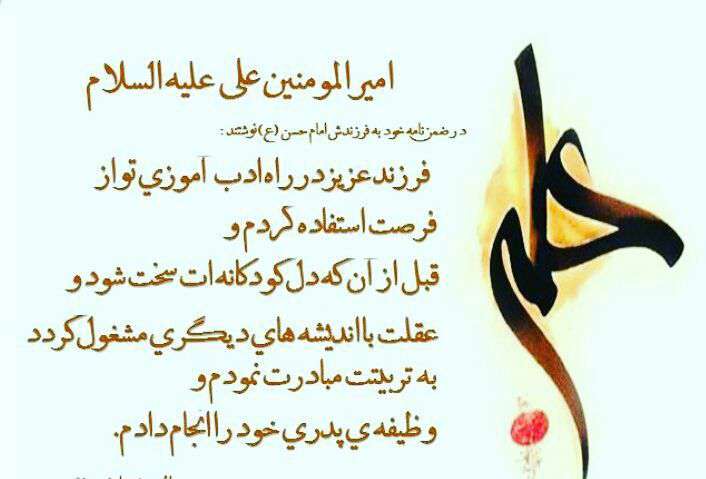 امیر المومنین علی علیه السلام
در ضمن نامه خود به فرزندش امام حسن (ع) نوشتند :
فرزند عزیز در راه ادب آموزي تو از
فرصت استفاده کردم و
قبل از آن که دل کودکانه ات سخت شود و
عقلت با اندیشه هاي دیگري مشغول گردد
به تربیتت مبادرت نمودم و
وظیفه ي پدري خود را انجام دادم.
علی